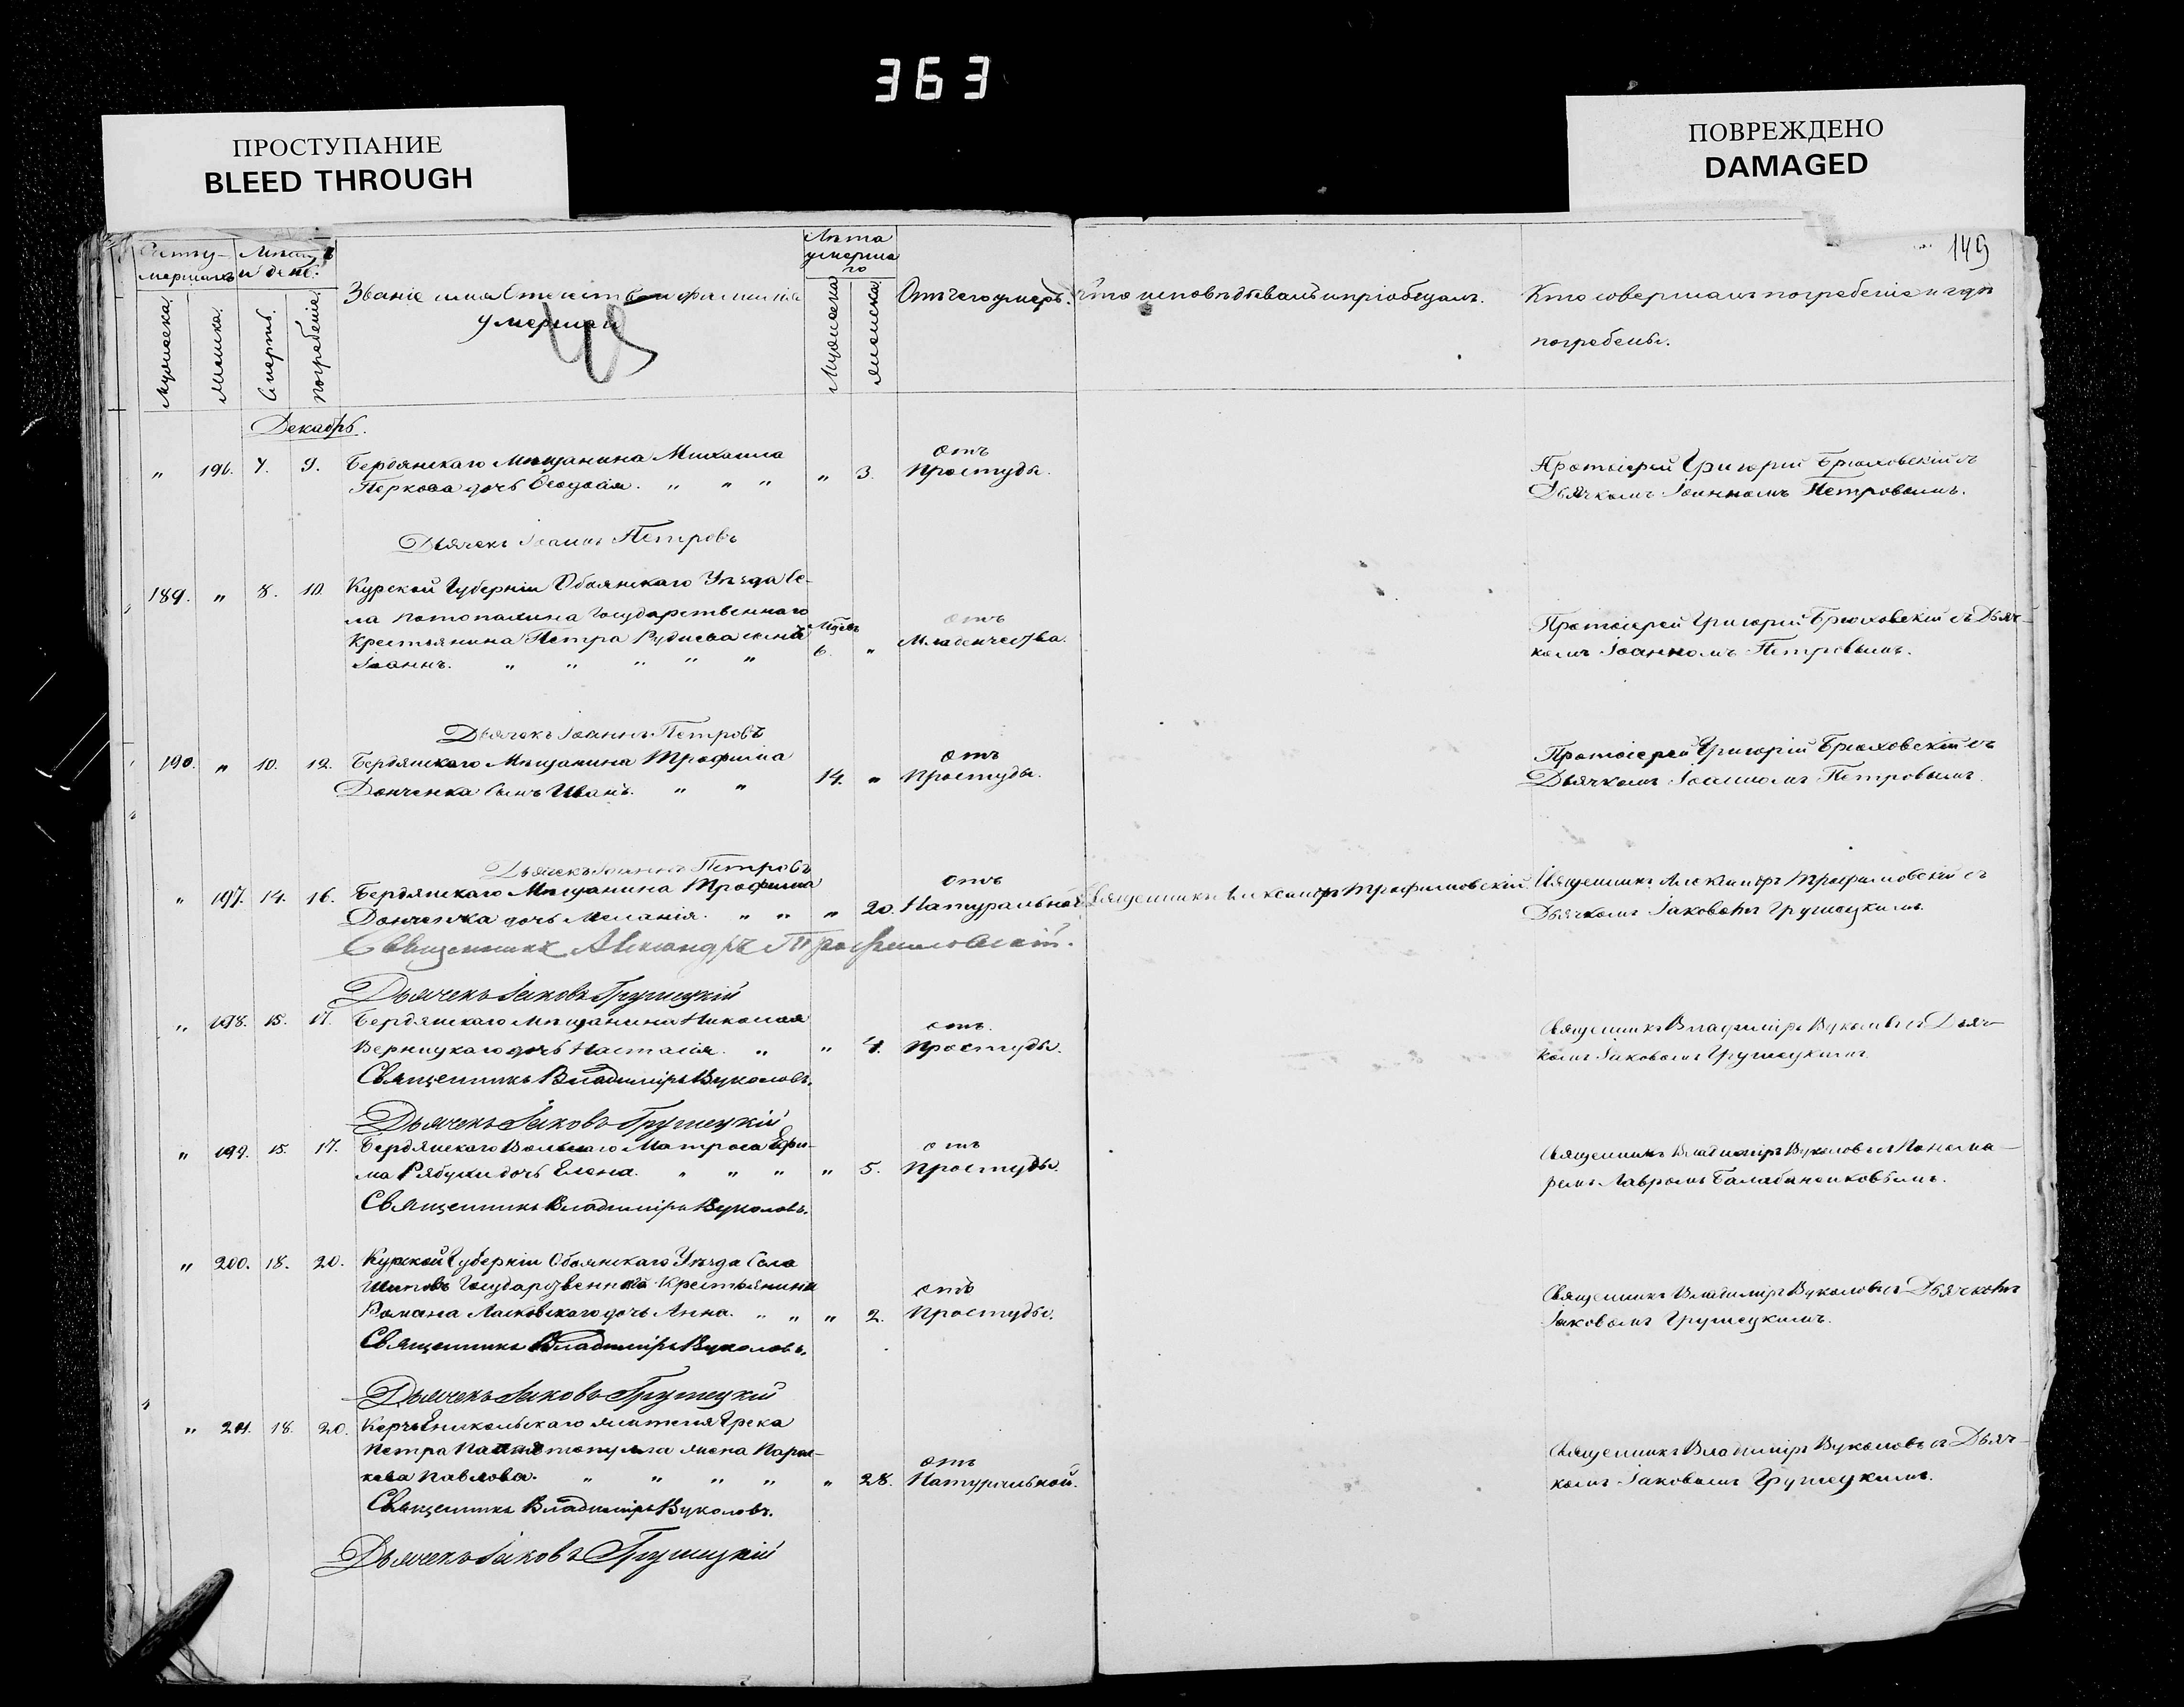 363
ПРОСТУПАНИЕ
BLEED THROUGH
ПОВРЕЖДЕНО
DAMAGED
149
Счетъ умершихъ
и день.
Лѣта умершаго
Мужеска.
Женска.
Смерть.
Погребенія.
Званіе имя Отчество и фамилія
умерших
Мужеска
Женска
Отъ чего умеръ.
Кто исповѣдывалъ и пріобщалъ.
Кто совершалъ погребеніе и гдѣ
погребены.
Декабрь.
" 196. 7. 9. Бердянскаго Мѣщанина Михаила
Перкова дочь Ѳеодосія. " " " " 3. отъ Простуды.
Протоіерей Григорій Брюховскій съ
Дьячкомъ Іоанномъ Петровымъ.
Дьячекъ Іоаннъ Петровъ
189. " 8. 10. Курской Губерніи Обоянскаго Уѣзда Се-
ла Государственнаго
Крестьянина Петра сынъ
Іоаннъ. " " " " " 6. " отъ Младенчества.
Протоіерей Григорій Брюховскій съ Дьяч-
комъ Іоанномъ Петровымъ.
Дьячекъ Іоаннъ Петровъ
190. " 10. 12. Бердянскаго Мѣщанина Трофима
Донченка сынъ Иванъ. " " 14. " отъ Простуды.
Протоіерей Григорій Брюховскій съ
Дьячкомъ Іоанномъ Петровымъ.
Дьячекъ Іоаннъ Петровъ
" 197. 14. 16. Бердянскаго Мѣщанина Трофима
Донченка дочь Меланія. " " " 20. отъ Натуральной
Священникъ Александръ Трофимовскій.
Священникъ Александръ Трофимовскій съ
Дьячкомъ Іаковомъ Грушецкимъ.
Священникъ Александръ Трофимовскій.
Дьячекъ Іаковъ Грушецкій
" 198. 15. 17. Бердянскаго Мѣщанина Николая
Верницкаго дочь Настасія. " " 4. отъ Простуды.
Священникъ Владиміръ Вуколовъ съ Дьяч-
комъ Іаковомъ Грушецкимъ
Священникъ Владиміръ Вуколовъ.
Дьячекъ Іаковъ Грушецкій
" 199. 15. 17. Бердянскаго Вольнаго Матроса Ефи-
ма Рябухи дочь Елена. " " " " 5. отъ Простуды.
Священникъ Владиміръ Вуколовъ съ Понома-
ремъ Лавромъ
Священникъ Владиміръ Вуколовъ.
" 200. 18. 20. Курской Губерніи Обоянскаго Уѣзда Села
Шиповъ Государственнаго Крестьянина
Романа Масковскаго дочь Анна. " " " 2. отъ Простуды.
Священникъ Владиміръ Вуколовъ съ Дьячкомъ
Іаковомъ Грушецкимъ.
Священникъ Владиміръ Вуколовъ.
Дьячекъ Іаковъ Грушецкій
" 201. 18. 20. Керчь Еникольскаго жителя Грека
Петра жена Парас-
кева Павлова. " " " " " 28. отъ Натуральной.
Священникъ Владиміръ Вуколовъ съ Дьяч-
комъ Іаковомъ Грушецкимъ.
Священникъ Владиміръ Вуколовъ.
Дьячекъ Іаковъ Грушецкій